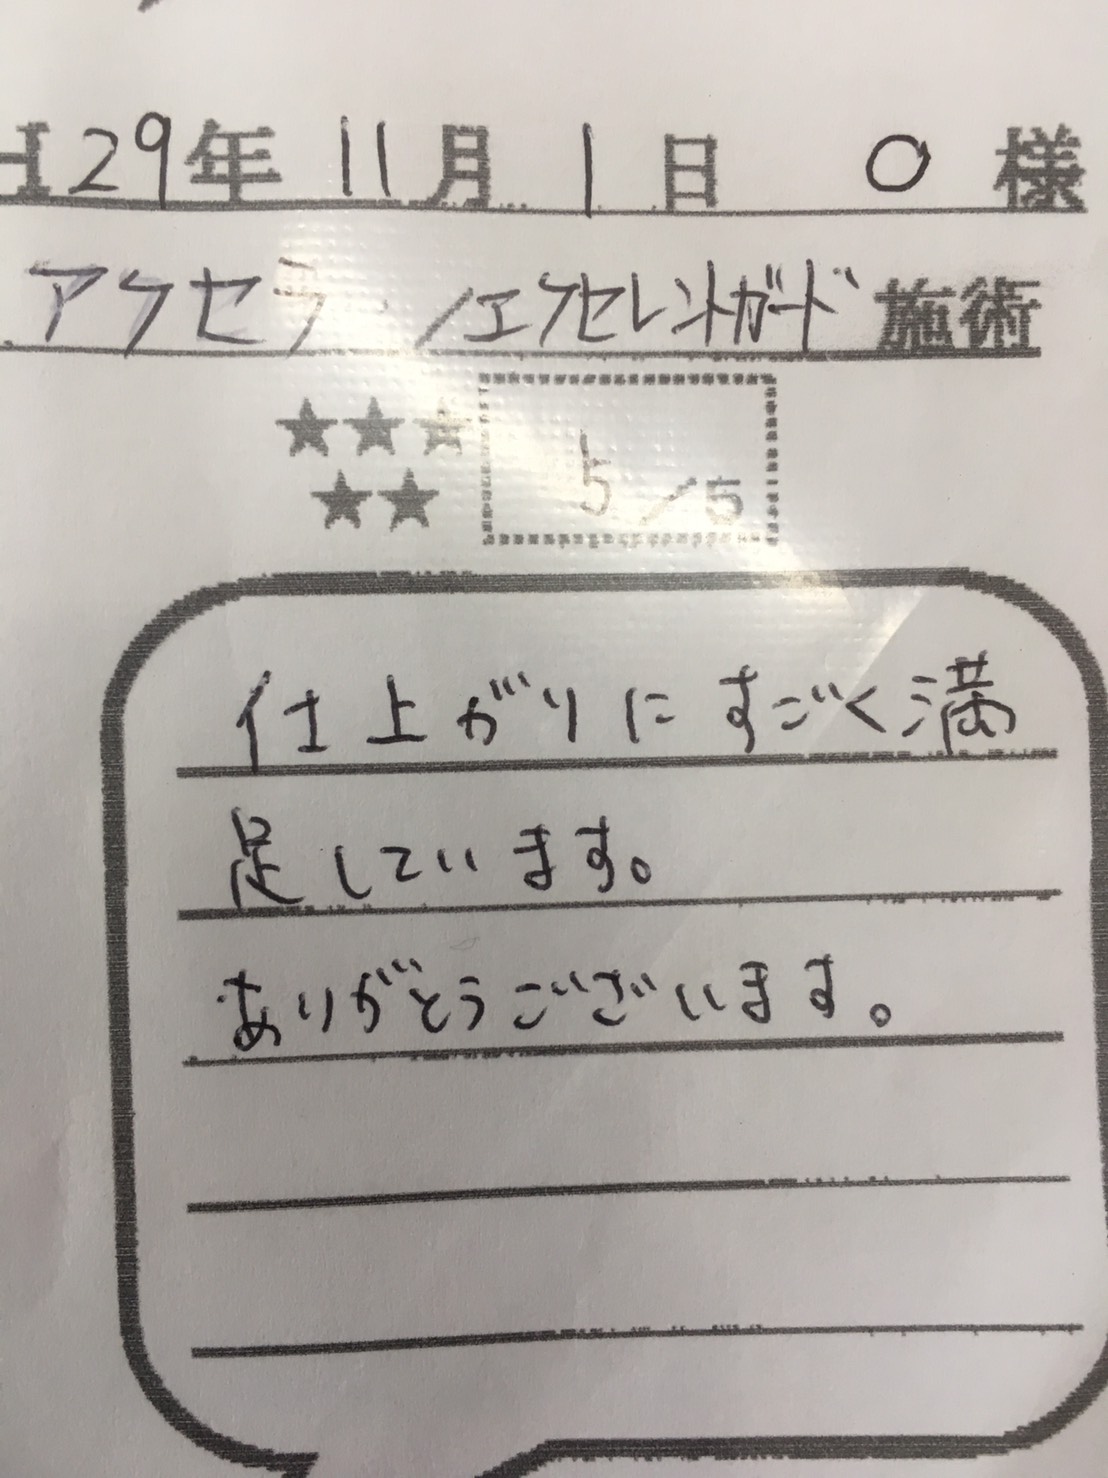 H29年 11月 1日 O 様
アクセラ/エクセレントガード 施術
★★★
★★
5/5
仕上がりにすごく満
足しています。
ありがとうございます。